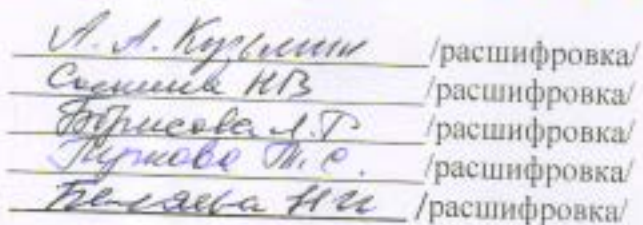 А. А. Кузьмин /расшифровка/
Сонина НВ /расшифровка/
Борисова Л.Г /расшифровка/
Пучкова Т.С. /расшифровка/
Беляева НИ /расшифровка/